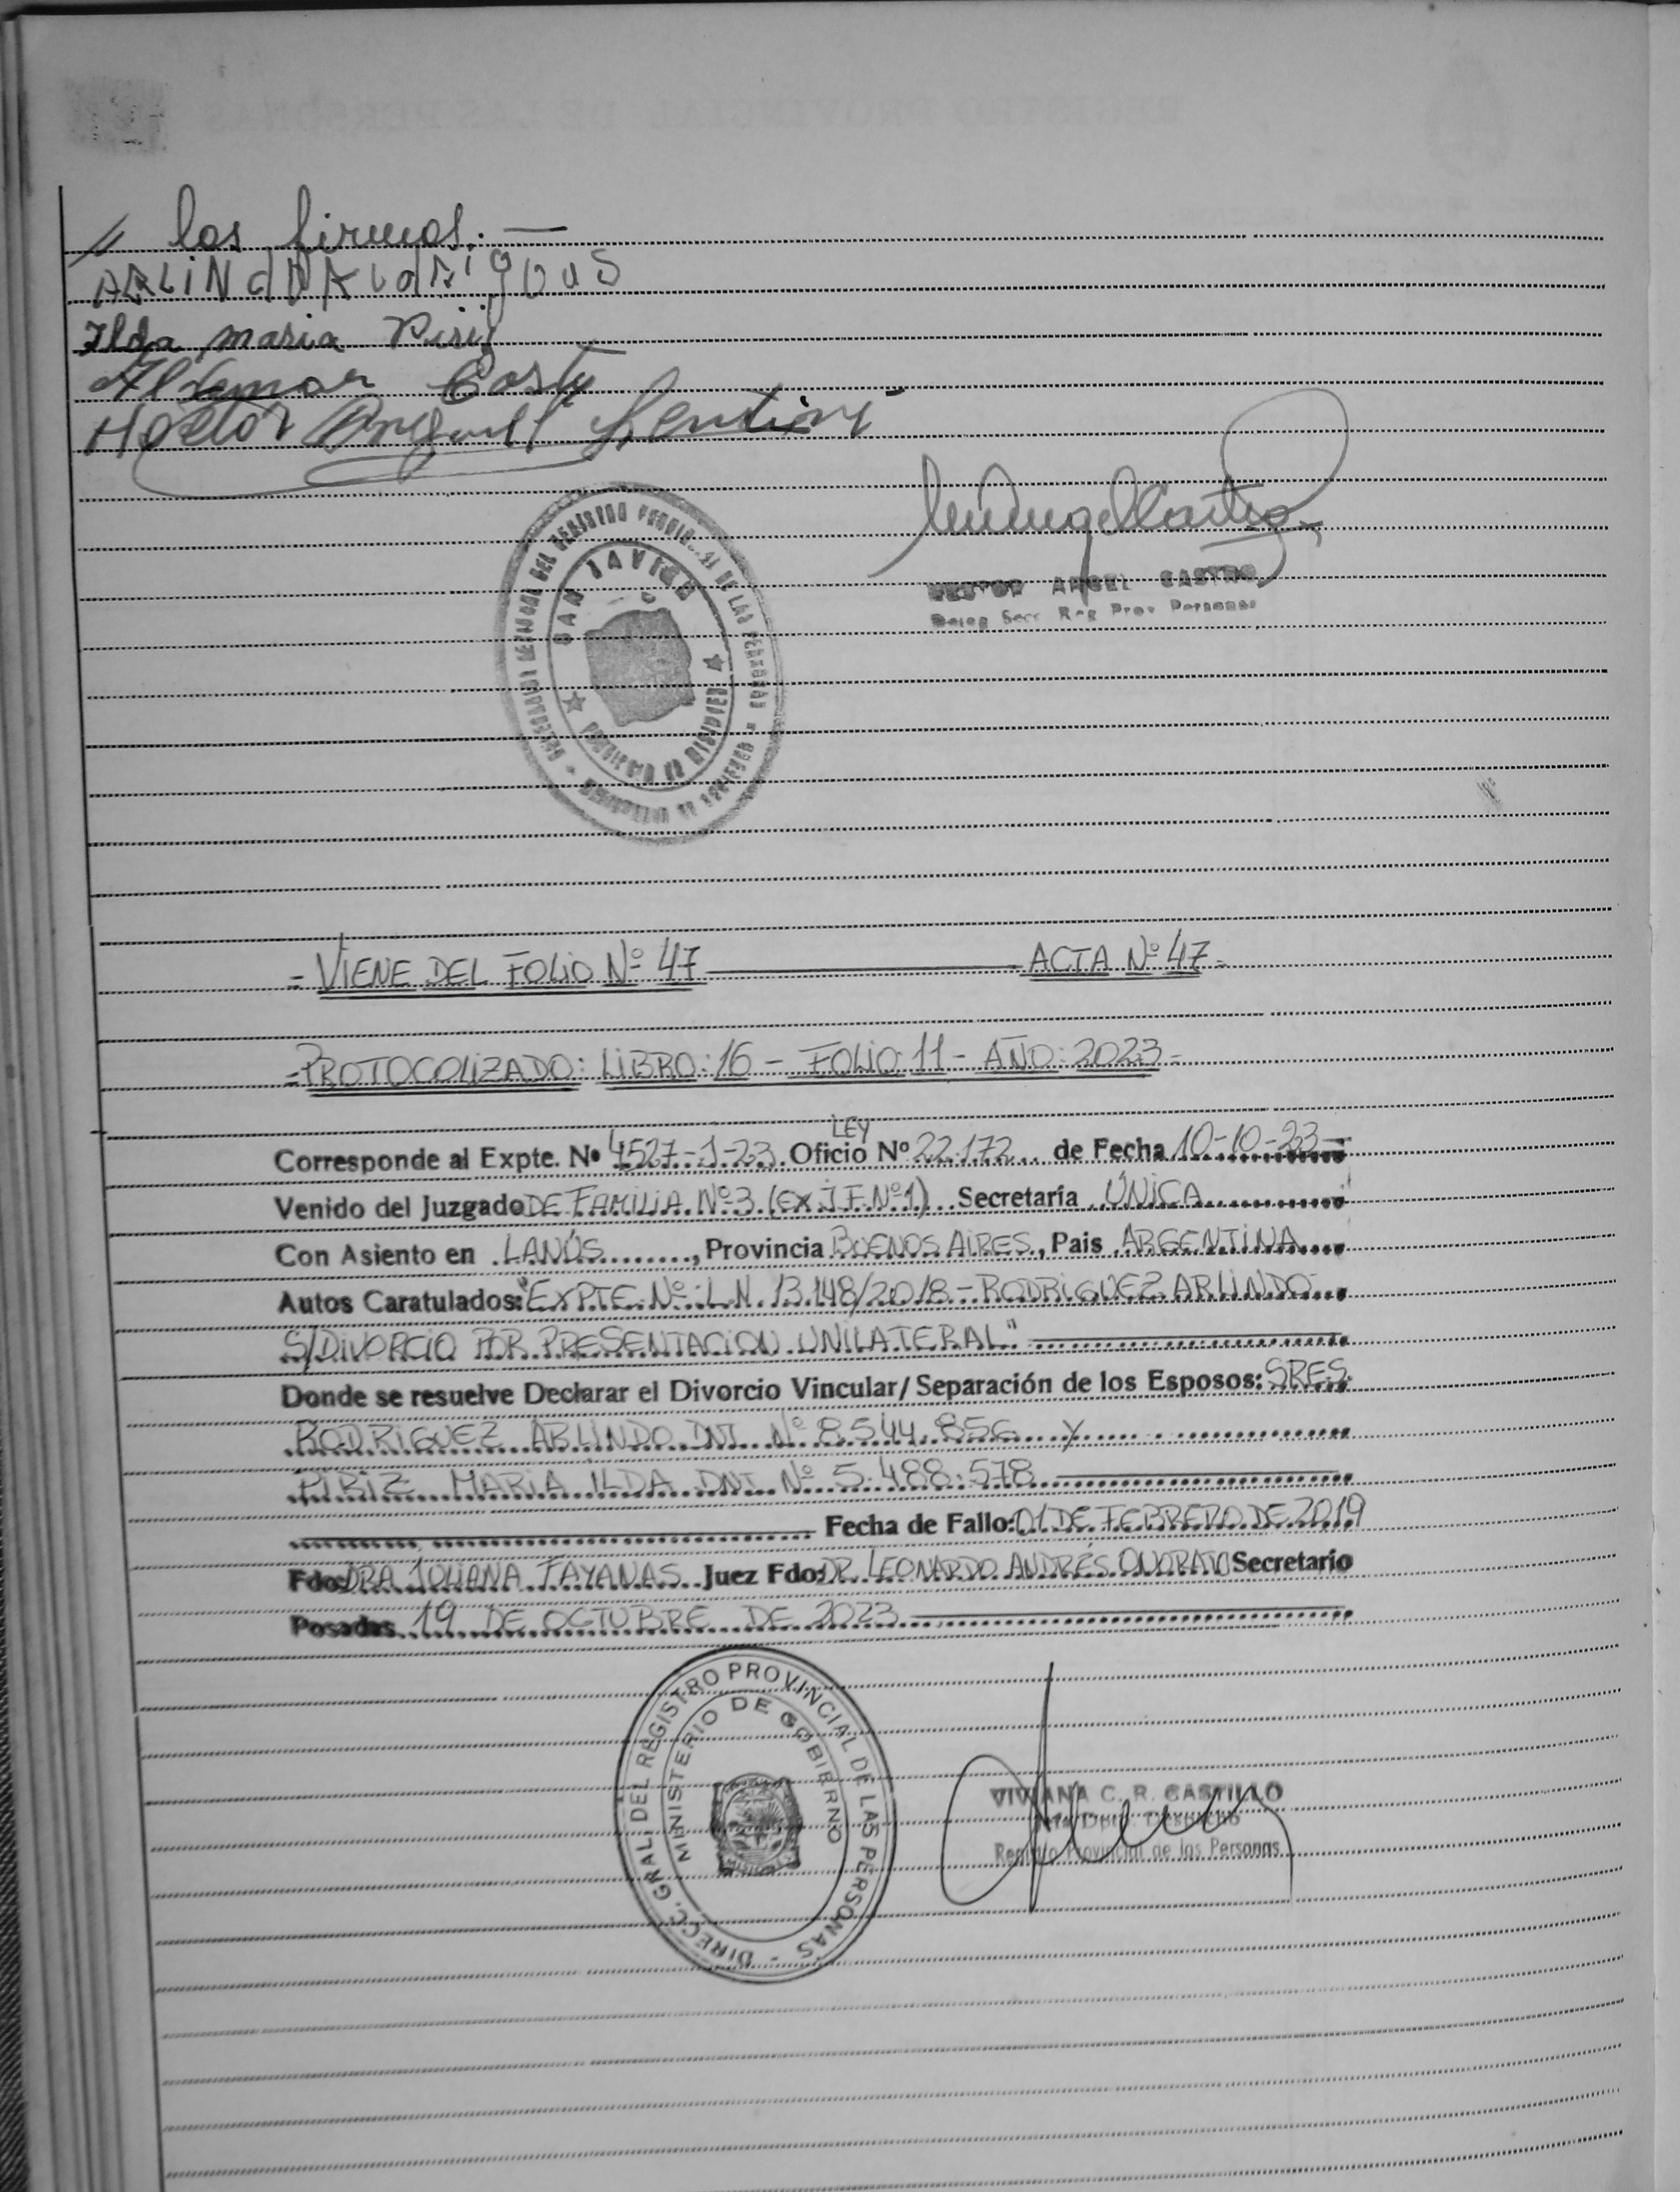 // las firmas. —
Ilda maria Piriz
Hector
SAN JAVIER
NESTOR ANGEL CASTRO
Deleg Secc Reg Prov Personas
= VIENE DEL FOLIO Nº 47 ACTA Nº 47 =
= PROTOCOLIZADO: LIBRO: 16 - FOLIO: 11 - AÑO: 2023 =
LEY
Corresponde al Expte. Nº 4527-J-23 Oficio Nº 22.172 de Fecha 10-10-23
Venido del Juzgado DE FAMILIA Nº 3 (EX J.F. Nº 1) Secretaría ÚNICA
Con Asiento en LANÚS, Provincia BUENOS AIRES, Pais ARGENTINA
Autos Caratulados: "EXPTE. Nº: L.N. 13.148/2018 - RODRIGUEZ ARLINDO
S/DIVORCIO POR PRESENTACION UNILATERAL"
Donde se resuelve Declarar el Divorcio Vincular/Separación de los Esposos: SRES.
RODRIGUEZ ARLINDO DNI Nº 8.544.856 Y
PIRIZ MARIA ILDA DNI Nº 5.488.578
Fecha de Fallo: 01 DE FEBRERO DE 2019
Fdo: DRA FAYANAS Juez Fdo: DR. LEONARDO ANDRÉS ONORATO Secretario
Posadas 19 DE OCTUBRE DE 2023
DIRECC. GRAL. DEL REGISTRO PROVINCIAL DE LAS PERSONAS
MINISTERIO DE GOBIERNO
VIVIANA C. R. CASTILLO
Dpto. Despacho
Registro Provincial de las Personas